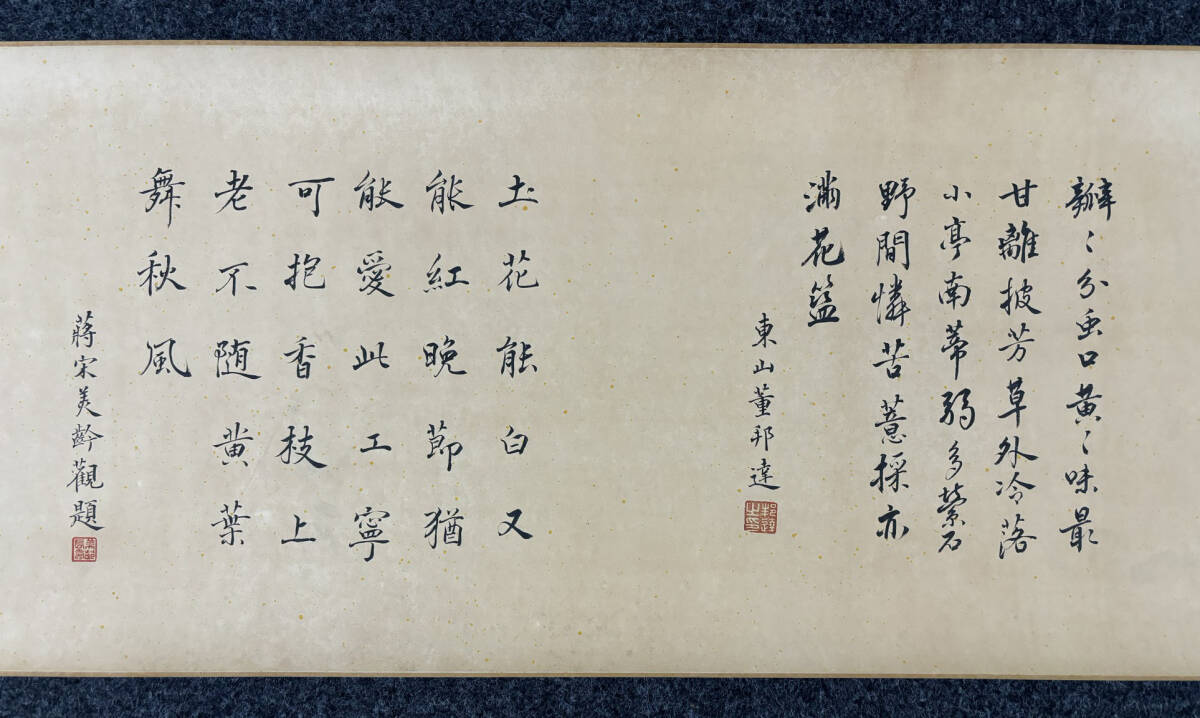 瓣〻分重口黄〻味最
甘離披芳草外冷落
小亭南蒂弱多縈石
野間憐苦薏採亦
滿花籃
東山董邦達
邦達之印
土花能白又
能紅晚節猶
能愛此工寧
可抱香枝上
老不随黄葉
舞秋風
蔣宋美齡觀題